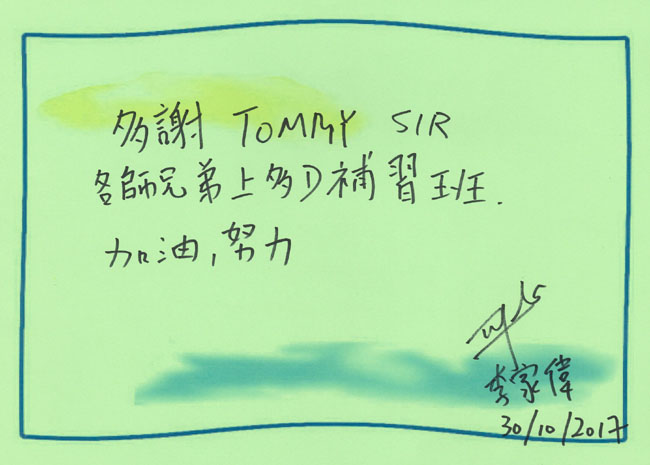 多謝 TOMMY SIR
各師兄弟上多D補習班.
加油,努力
李家偉
30/10/2017